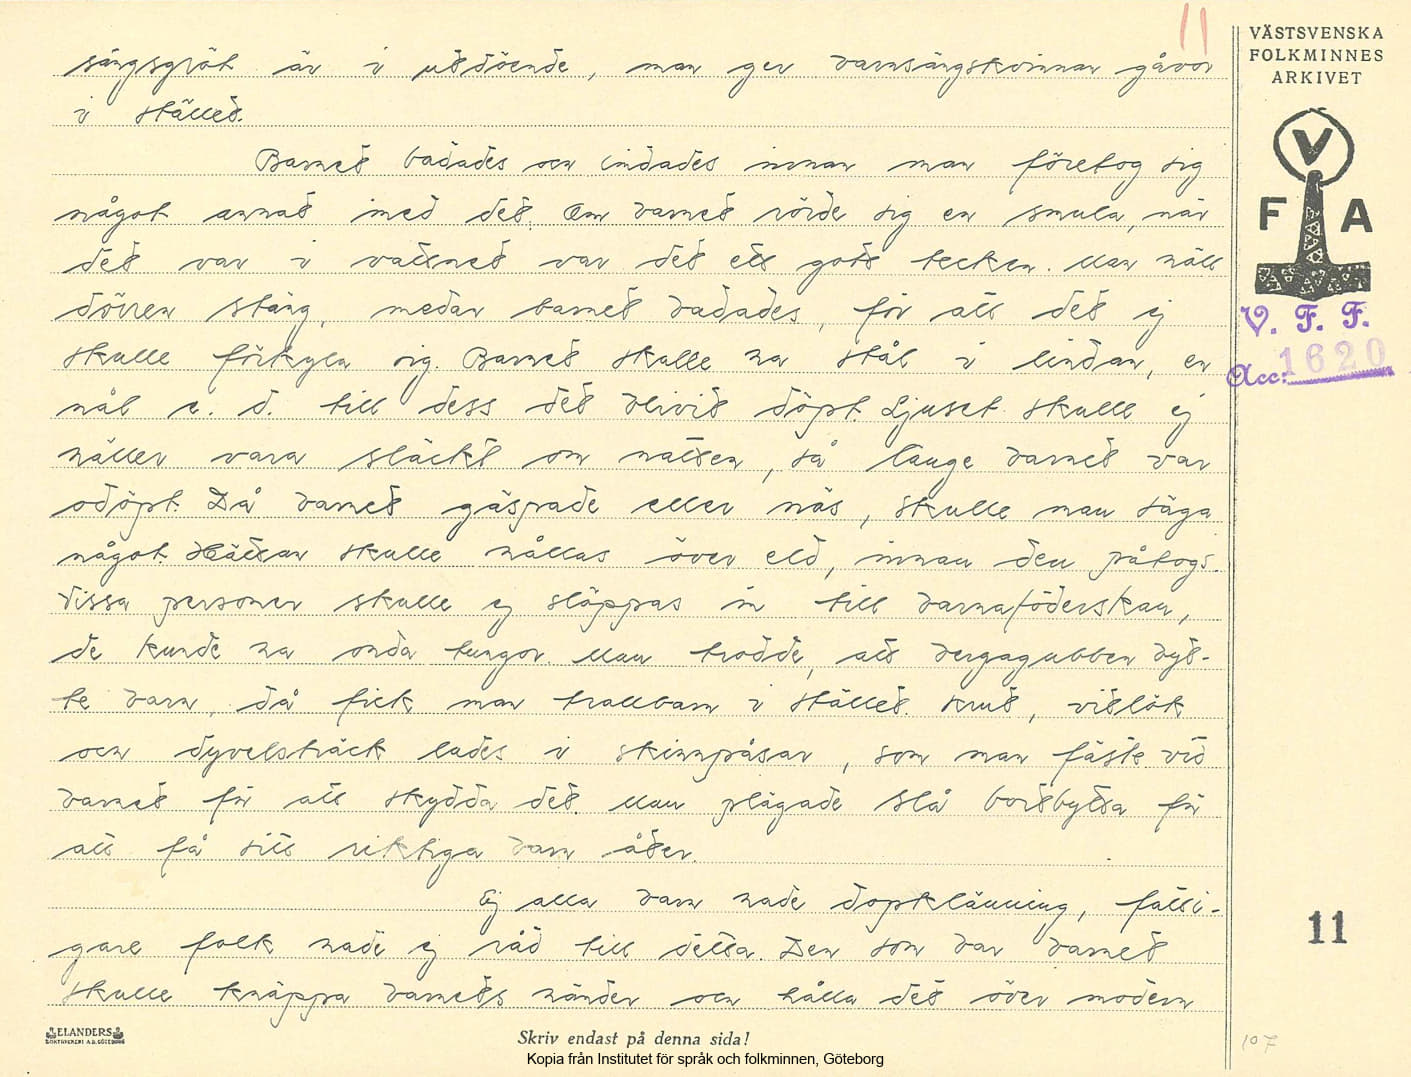 11
VÄSTSVENSKA
FOLKMINNES
ARKIVET
V
F A
V. F. F.
Acc: 1620
sängsgröt är i utdöende, man ger barnsängskvinnan gåvor
i stället.
Barnet badades och lindades innan man företog sig
något annat med det. Om barnet rörde sig en smula, när
det var i vattnet var det ett gott tecken. Man höll
dörren stäng, medan barnet badades, för att det ej
skulle förkyla sig. Barnet skulle ha stål i lindan, en
nål e. d. till dess det blivit döpt. Ljuset skulle ej
häller vara släckt om natten, så länge barnet var
odöpt. Då barnet gäspade eller nös, skulle man säga
något. Hättan skulle hållas över eld, innan den påtogs.
Vissa personer skulle ej släppas in till barnaföderskan,
de kunde ha onda tungor. Man trodde, att bergagubben byt-
te barn, då fick man trollbarn i stället. Krut, vitlök
och dyvelsträck lades i skinnpåsar, som man fäste vid
barnet för att skydda det. Man plägade slå bortbytta för
att få sitt riktiga barn åter.
Ej alla barn hade dopklänning, fatti-
gare folk hade ej råd till detta. Den som bar barnet
skulle knäppa barnets händer och hålla det över modern
11
ELANDERS
BOKTRYCKERI A.B. GÖTEBORG
Skriv endast på denna sida!
107
Kopia från Institutet för språk och folkminnen, Göteborg